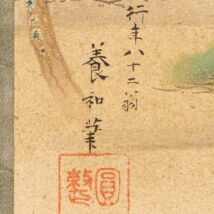 行年八十二翁
養和筆
圓製